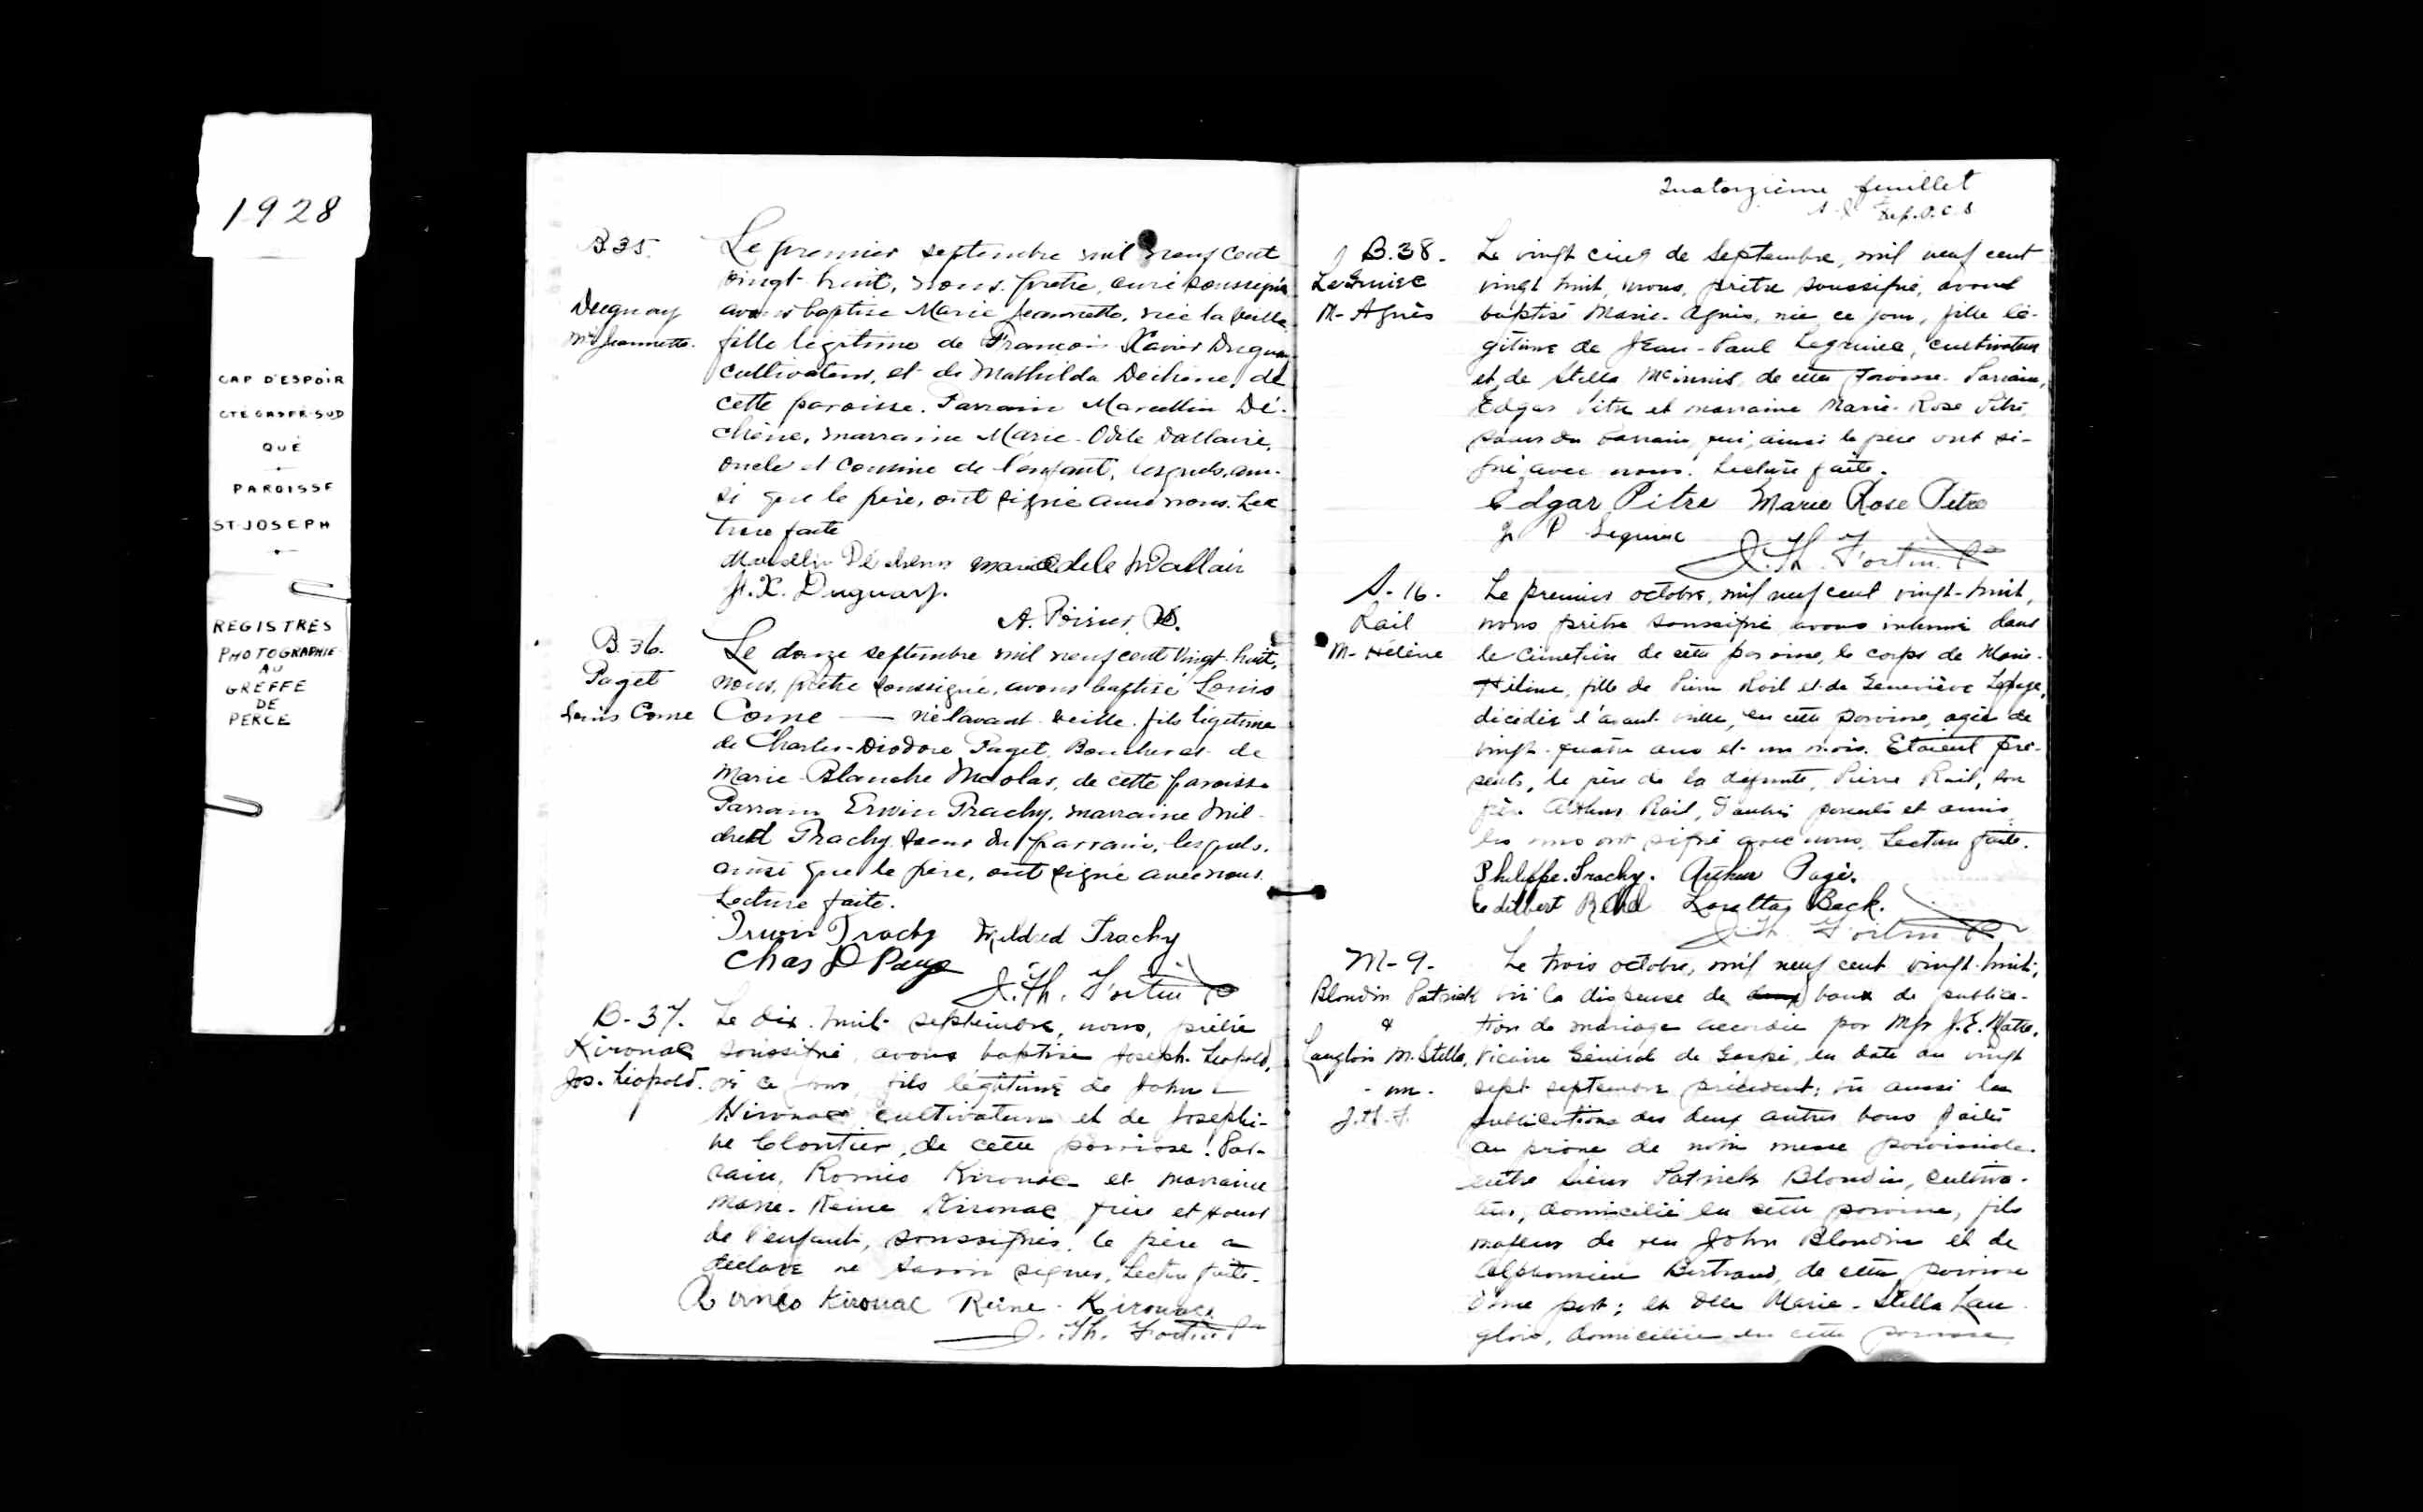 1928
CAP D'ESPOIR
CTÉ GASPÉ-SUD
QUÉ
PAROISSE
ST-JOSEPH
REGISTRES
PHOTOGRAPHIE
AU
GREFFE
DE
PERCE
B 35.
Duguay
Mie Jeannette.
Le premier septembre mil neuf cent
vingt-huit, nous, prêtre, curé soussigné
avons baptisé Marie Jeannette, née la veille
fille légitime de François Xavier Duguay
cultivateur, et de Mathilda Dechêne, de
cette paroisse. Parrain Marcellin Dé-
chêne, marraine Marie-Odile Dallaire,
oncle et cousine de l'enfant, lesquels, ain-
si que le père, ont signé avec nous. Lec
ture faite
Marcellin Déchene marie odele Dallair
F. X. Duguay.
A. Poirier
B. 36.
Paget
Louis Come
Le douze septembre mil neuf cent vingt-huit,
nous, prêtre soussigné, avons baptisé Louis
Come — né l'avant-veille, fils légitime
de Charles-Diodore Paget, Boucher et de
Marie-Blanche Nicolas, de cette paroisse
Parrain Erwin Trachy, marraine Mil-
dred Trachy soeur du parrain, lesquels,
ainsi que le père, ont signé avec nous.
Lecture faite.
Irwin Trachy Mildred Trachy
Chas D Page
J. Th. Fortin P
B-37.
Kirouac
Jos. Léopold.
Le dix-huit septembre, nous, prêtre
soussigné, avons baptisé Joseph-Léopold,
né ce jour, fils légitime de John
Kirouac cultivateur et de Josephi-
ne Cloutier, de cette paroisse. Par-
rain, Roméo Kirouac et marraine
Marie-Reine Kirouac frère et soeur
de l'enfant, soussignés, le père a
déclaré ne savoir signer, Lecture faite.
Roméo Kirouac Reine-Kirouac.
J. Th. Fortin P
Quatorzième feuillet
Dép. P.C.S
B.38.
LeGuiec
M-Agnès
Le vingt cinq de Septembre, mil neuf cent
vingt huit, nous, prêtre soussigné, avons
baptisé Marie-Agnès, née ce jour, fille lé-
gitime de Jean-Paul Leguiec, cultivateur
et de Stella McInnis, de cette paroisse. Parrain,
Edgar Pitre et marraine Marie-Rose Pitre,
soeur du parrain, qui, ainsi le père ont si-
gné avec nous. Lecture faite.
Edgar Pitre Marie Rose Pitre
J P Leguiec
J. Th. Fortin P
S-16.
Rail
M-Hélène
Le premier octobre, mil neuf cent vingt-huit,
nous prêtre soussigné avons inhumé dans
le cimetière de cette paroisse, le corps de Marie-
Hélène, fille de Pierre Rail et de Geneviève Lepage,
décédée l'avant-veille, en cette paroisse, agée de
vingt-quatre ans et un mois. Etaient pré-
sents, le père de la défunte, Pierre Rail, son
frère Arthur Rail, d'autres parents et amis,
les uns ont signé avec nous, Lecture faite.
Philippe Trachy. Arthur Pagé.
Edilbert Rehel Loretta Beck.
J. Th Fortin P
M-9.
Blondin Patrick
&
Langlois M. Stella.
J. Th. F.
Le trois octobre, mil neuf cent vingt-huit,
vu la dispense de bans de publica-
tion de mariage accordée par Mgr J. E. Matte,
Vicaire Général de Gaspé, en date du vingt
sept septembre précédent; vu aussi les
publications des deux autres bans faites
au prône de notre messe paroissiale
entre Sieur Patrick Blondin, cultiva-
teur, domicilié en cette paroisse, fils
majeur de feu John Blondin et de
Alphonsine Bertrand, de cette paroisse
d'une part; et Dlle Marie-Stella Lan-
glois, domiciliée en cette paroisse